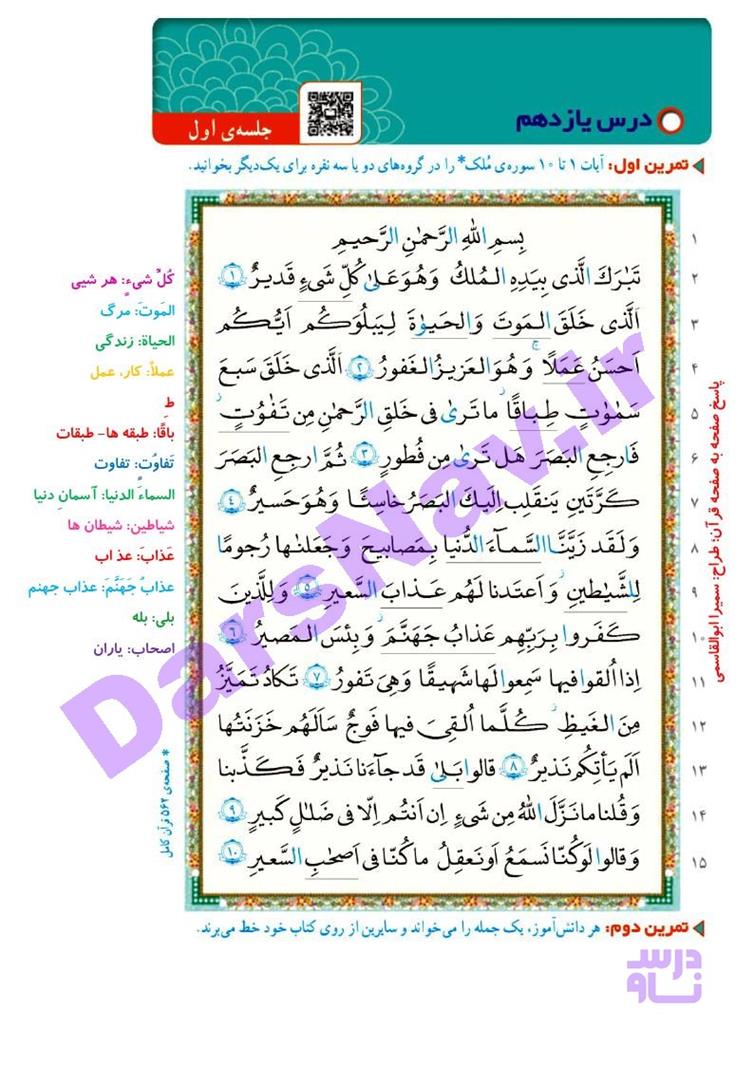 درس یازدهم
جلسه‌ی اول
تمرین اول: آیات ۱ تا ۱۰ سوره‌ی مُلک* را در گروه‌های دو یا سه نفره برای یک‌دیگر بخوانید.
۱ بِسمِ اللهِ الرَّحمٰنِ الرَّحیمِ
۲ تَبٰرَکَ الَّذی بِیَدِهِ المُلکُ وَ هُوَ عَلیٰ کُلِّ شَیءٍ قَدیرٌ ﴿۱﴾
۳ اَلَّذی خَلَقَ المَوتَ وَ الحَیوٰةَ لِیَبلُوَکُم اَیُّکُم
۴ اَحسَنُ عَمَلًا ۚ وَ هُوَ العَزیزُ الغَفورُ ﴿۲﴾ اَلَّذی خَلَقَ سَبعَ
۵ سَمٰوٰتٍ طِباقًا ۖ ما تَریٰ فی خَلقِ الرَّحمٰنِ مِن تَفٰوُتٍ ۖ
۶ فَارجِعِ البَصَرَ هَل تَریٰ مِن فُطورٍ ﴿۳﴾ ثُمَّ ارجِعِ البَصَرَ
۷ کَرَّتَینِ یَنقَلِب اِلَیکَ البَصَرُ خاسِئًا وَ هُوَ حَسیرٌ ﴿۴﴾
۸ وَ لَقَد زَیَّنَّا السَّمآءَ الدُّنیا بِمَصابیحَ وَ جَعَلنٰها رُجومًا
۹ لِلشَّیٰطینِ ۖ وَ اَعتَدنا لَهُم عَذابَ السَّعیرِ ﴿۵﴾ وَ لِلَّذینَ
۱۰ کَفَروا بِرَبِّهِم عَذابُ جَهَنَّمَ ۖ وَ بِئسَ المَصیرُ ﴿۶﴾
۱۱ اِذا اُلقوا فیها سَمِعوا لَها شَهیقًا وَ هِیَ تَفورُ ﴿۷﴾ تَکادُ تَمَیَّزُ
۱۲ مِنَ الغَیظِ ۖ کُلَّما اُلقِیَ فیها فَوجٌ سَاَلَهُم خَزَنَتُها
۱۳ اَلَم یَأتِکُم نَذیرٌ ﴿۸﴾ قالوا بَلیٰ قَد جآءَنا نَذیرٌ فَکَذَّبنا
۱۴ وَ قُلنا ما نَزَّلَ اللهُ مِن شَیءٍ اِن اَنتُم اِلّا فی ضَلٰلٍ کَبیرٍ ﴿۹﴾
۱۵ وَ قالوا لَو کُنّا نَسمَعُ اَو نَعقِلُ ما کُنّا فی اَصحٰبِ السَّعیرِ ﴿۱۰﴾
کُلِّ شیءٍ: هر شیی
المَوتَ: مرگ
الحیاة: زندگی
عملاً: کار، عمل
طِ
باقًا: طبقه ها- طبقات
تَفاوُتٍ: تفاوت
السماءَ الدنیا: آسمانِ دنیا
شیاطین: شیطان ها
عَذابَ: عذ اب
عذابُ جَهَنَّمَ: عذاب جهنم
بلی: بله
اصحاب: یاران
* صفحه‌ی ۵۶۲ قرآن کامل
پاسخ صفحه به صفحه قرآن: طراح: سمیرا ابوالقاسمی
تمرین دوم: هر دانش‌آموز، یک جمله را می‌خواند و سایرین از روی کتاب خود خط می‌برند.
DarsNav.ir
درس
ناو